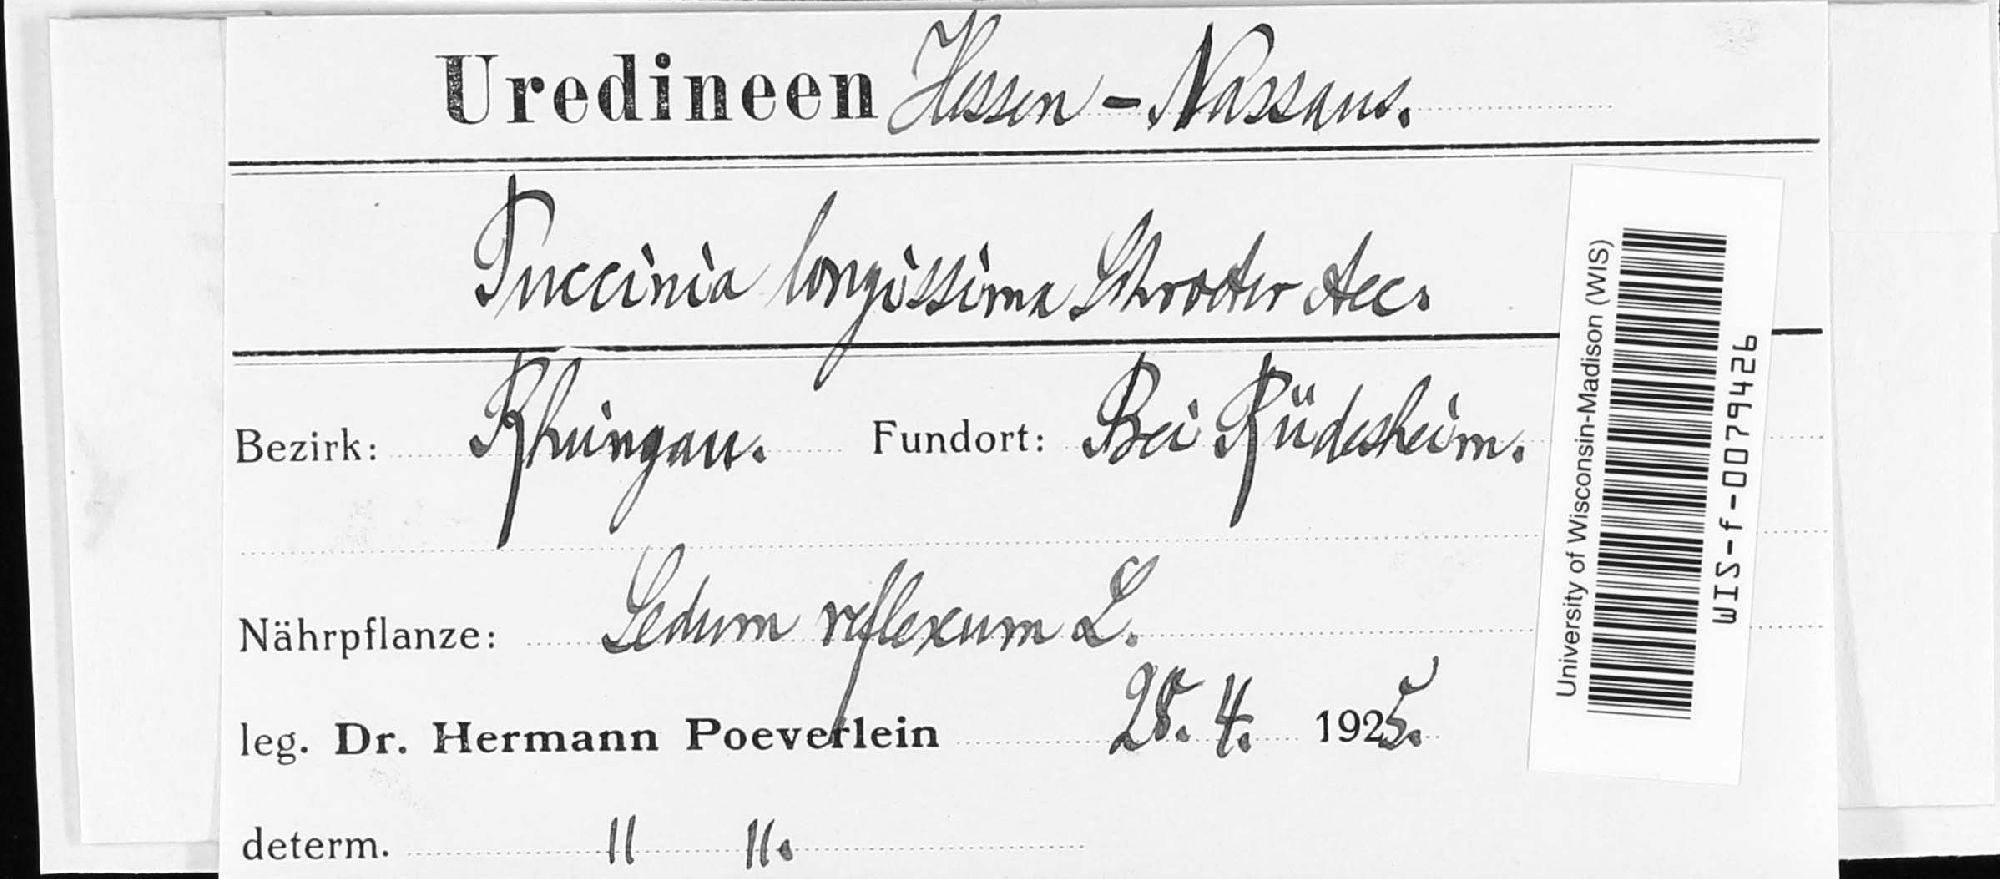 Uredineen Hessen-Nassaus.
Puccinia longissima Schroeter Aec.
Bezirk: Rheingau. Fundort: Bei Rüdesheim.
Nährpflanze: Sedum reflexum L.
leg. Dr. Hermann Poeverlein 28. 4. 1925.
determ. " ".
University of Wisconsin-Madison (WIS)
WIS-f-0079426